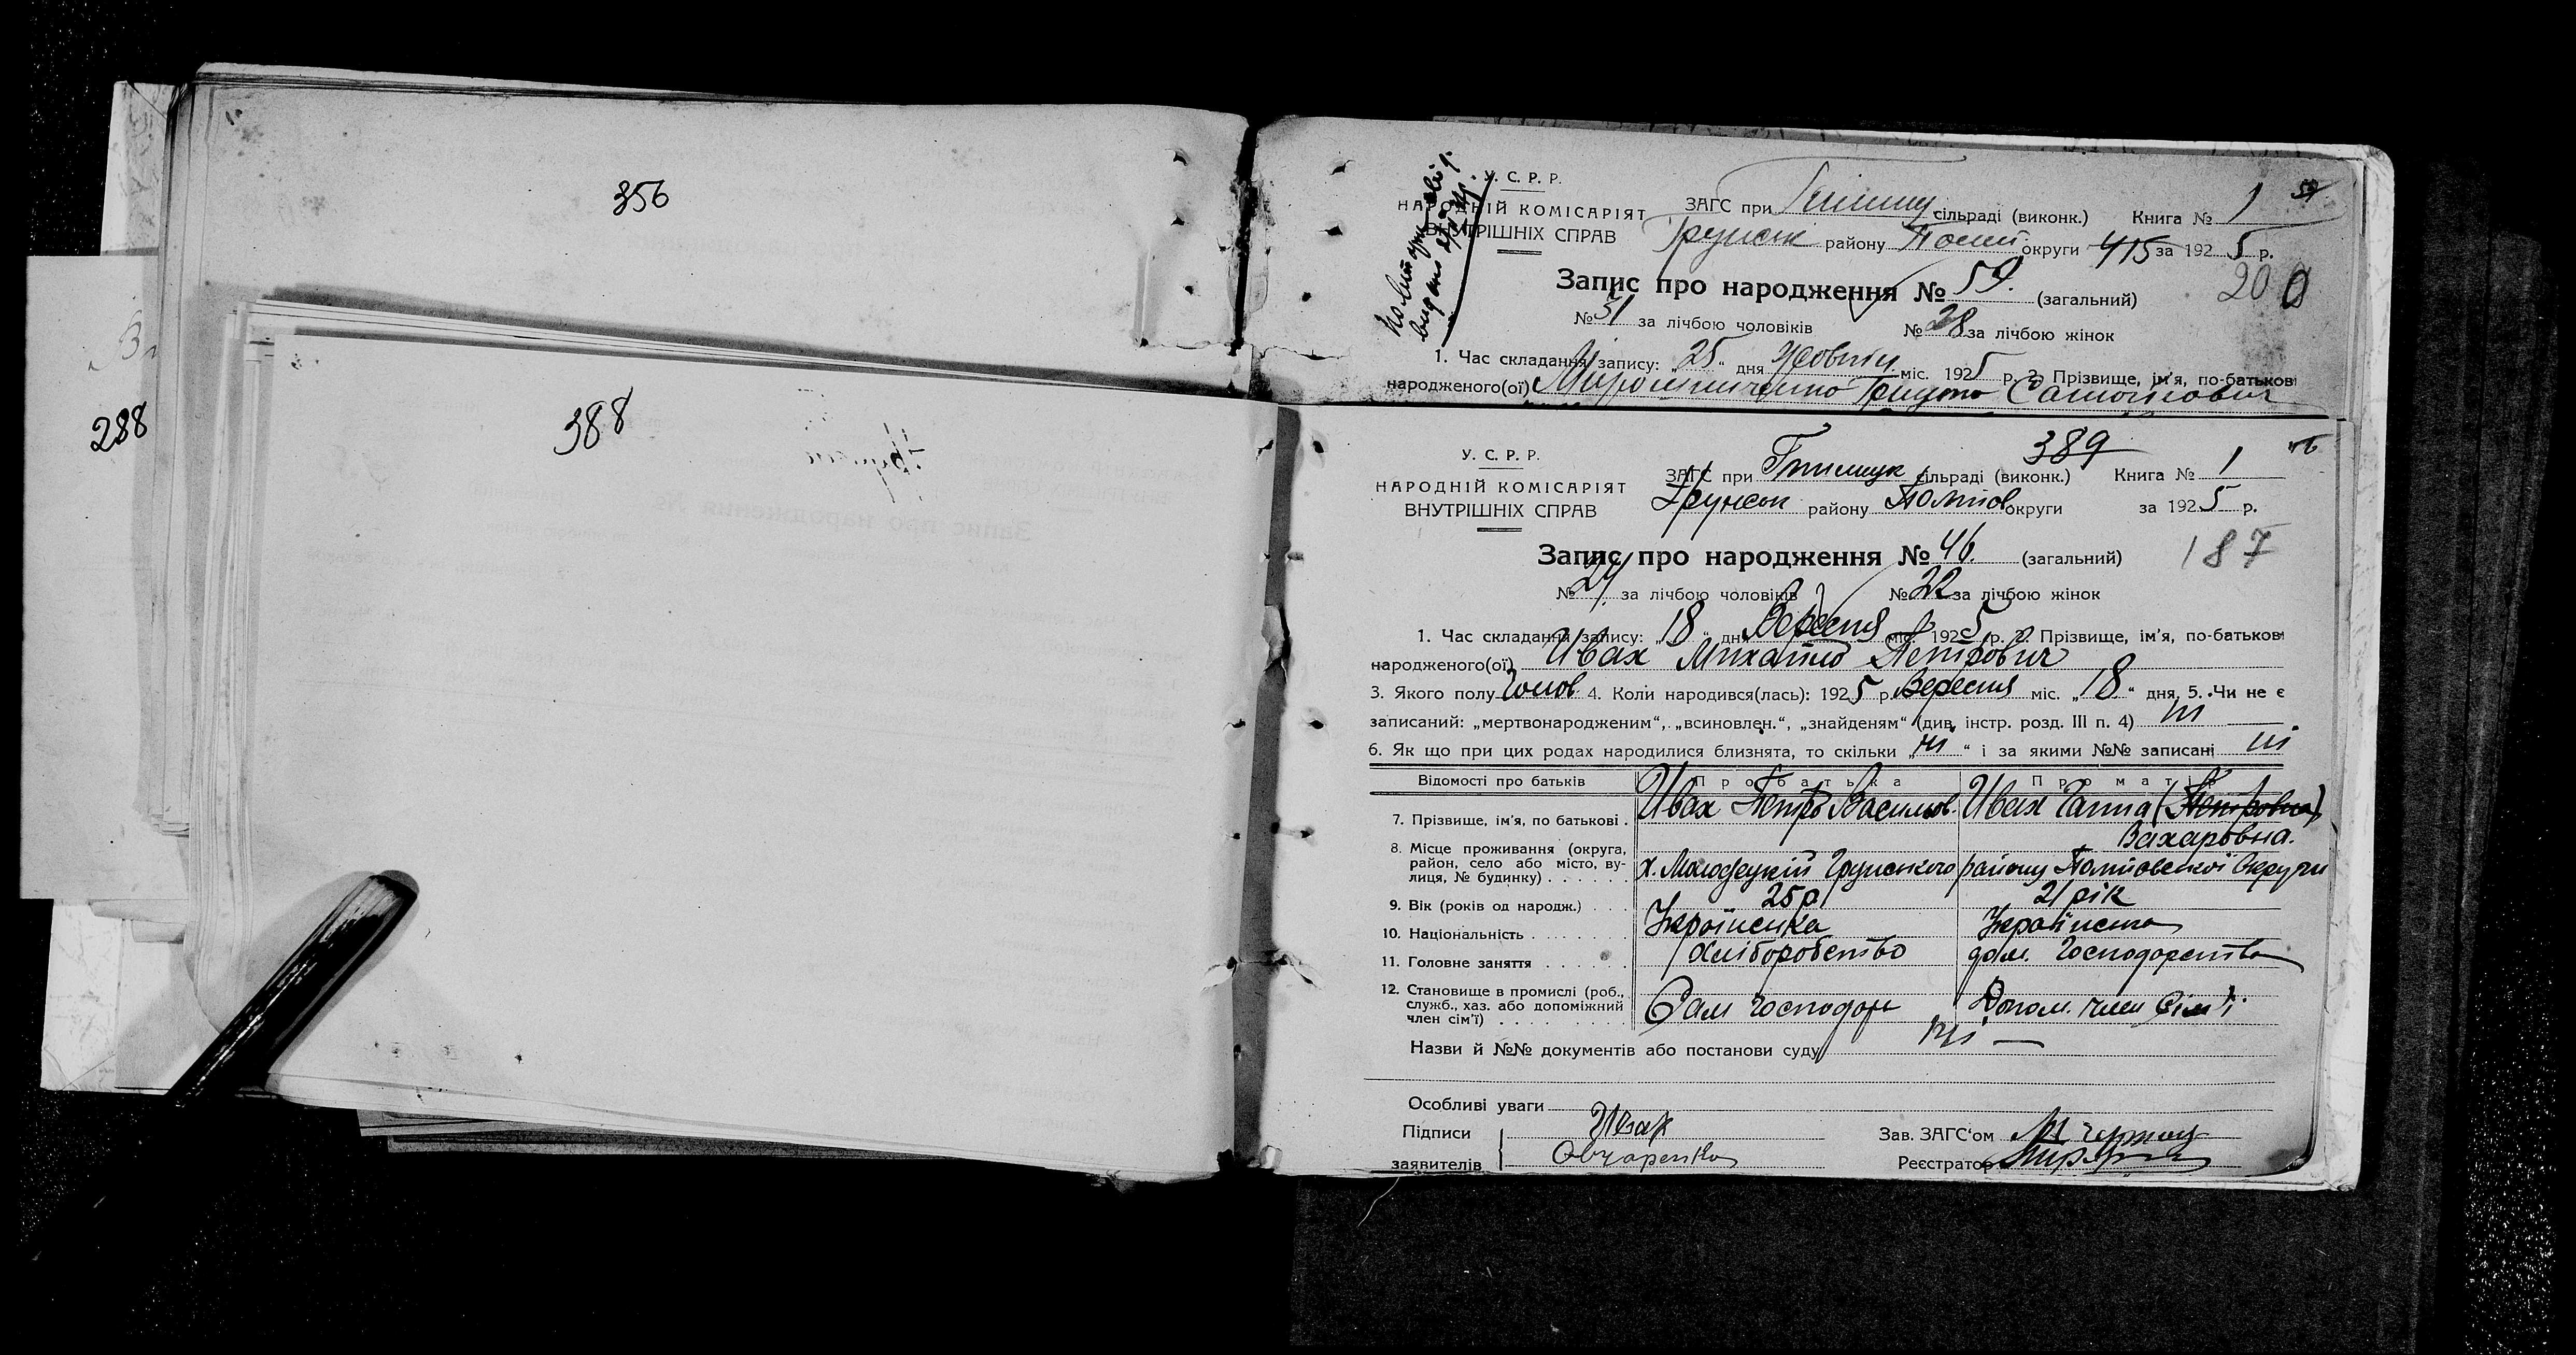 356
288
388
У. С. Р. Р.
НАРОДНІЙ КОМІСАРІЯТ
ВНУТРІШНІХ СПРАВ
ЗАГС при сільраді (виконк.) Книга № 1 59
Грунськ району Полт округи 415 за 1925 р.
Запис про народження № 59. (загальний) 200
№ 31 за лічбою чоловіків № 28 за лічбою жінок
1. Час складання запису: „25“ дня Жовтн міс. 1925 р. 2. Прізвище, ім'я, по-батькові
народженого(ої) Мирошниченко
389
У. С. Р. Р.
НАРОДНІЙ КОМІСАРІЯТ
ВНУТРІШНІХ СПРАВ
ЗАГС при сільраді (виконк.) Книга № 1 46
Грунськ району Полтов округи за 1925 р.
Запис про народження № 46. (загальний) 187
№ 24 за лічбою чоловіків № 22 за лічбою жінок
1. Час складання запису: „18“ дня Вересня міс. 1925 р. 2. Прізвище, ім'я, по-батькові
народженого(ої) Ивах Михайло Петрович
3. Якого полу Чолов 4. Коли народився(лась): 1925 р Вересня міс. „18“ дня, 5. Чи не є
записаний: „мертвонародженим“, „всиновлен.“, „знайденям“ (див. інстр. розд. III п. 4) ні
6. Як що при цих родах народилися близнята, то скільки „ні“ і за якими №№ записані ні
Відомості про батьків Про батька Про матір
7. Прізвище, ім'я, по батькові . Ивах Петро Васильов. Ивах Ганна (Петровна)
Захаровна.
8. Місце проживання (округа, район, село або місто, вулиця, № будинку) . . . . . . х. Молодецкій Грунського району Полтовської Округи
9. Вік (років од народж.) . . . 25 р. 21 рік
10. Національність . . . . . . . Українська Українська
11. Головне заняття . . . . . . Хліборобство дом. Господарство
12. Становище в промислі (роб., служб., хаз. або допоміжний член сім'ї) . . . . . . . . Сам господар Допом. член сім'ї
Назви й №№ документів або постанови суду ні
Особливі уваги
Підписи Ивах Зав. ЗАГС'ом
заявителів Овчаренко Реєстратор